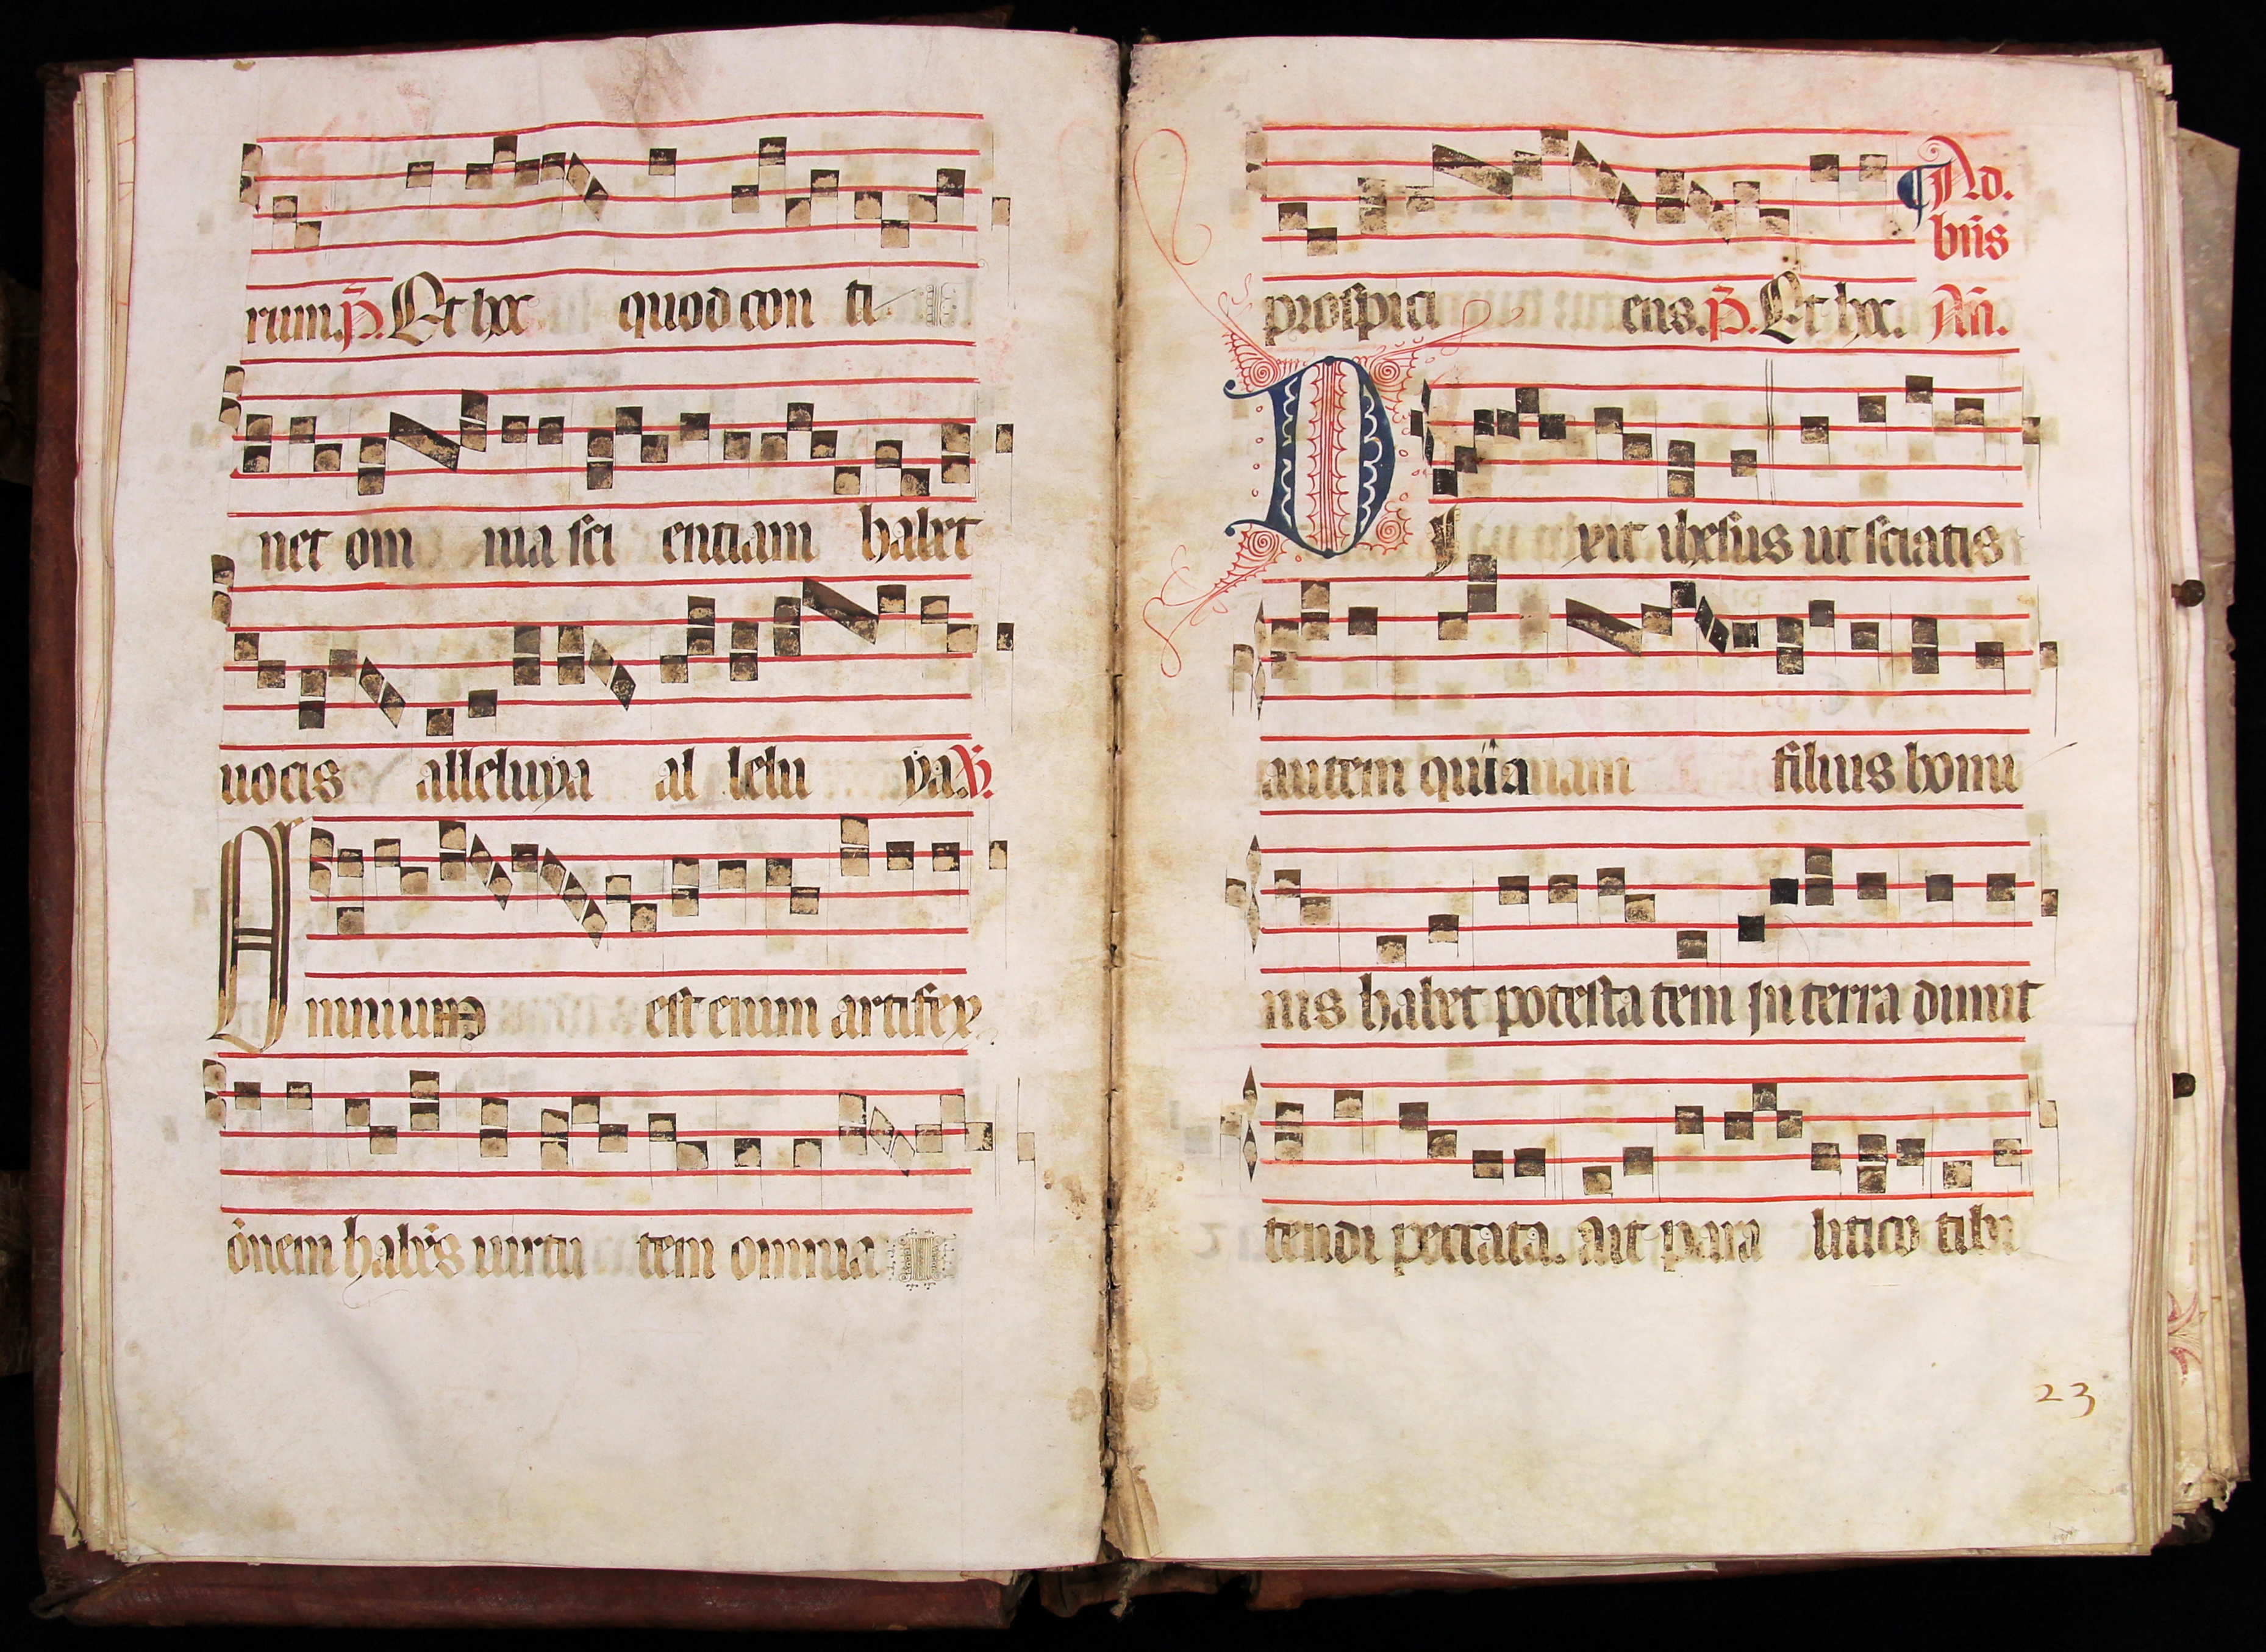 rum. p̄. Et hoc quod con ti
net om nia sci entiam habet
uocis alleluya al lelu ya. V̄.
Omnium est enim artifex
om̄em hab̄es uirtu tem omnia
Ad.
bn̄s
prospici ens. p̄. Et hoc. An̄.
DI xit ihesus ut sciatis
autem quia filius homi
nis habet potesta tem in terra dimit
tendi peccata. ait para litico tibi
23